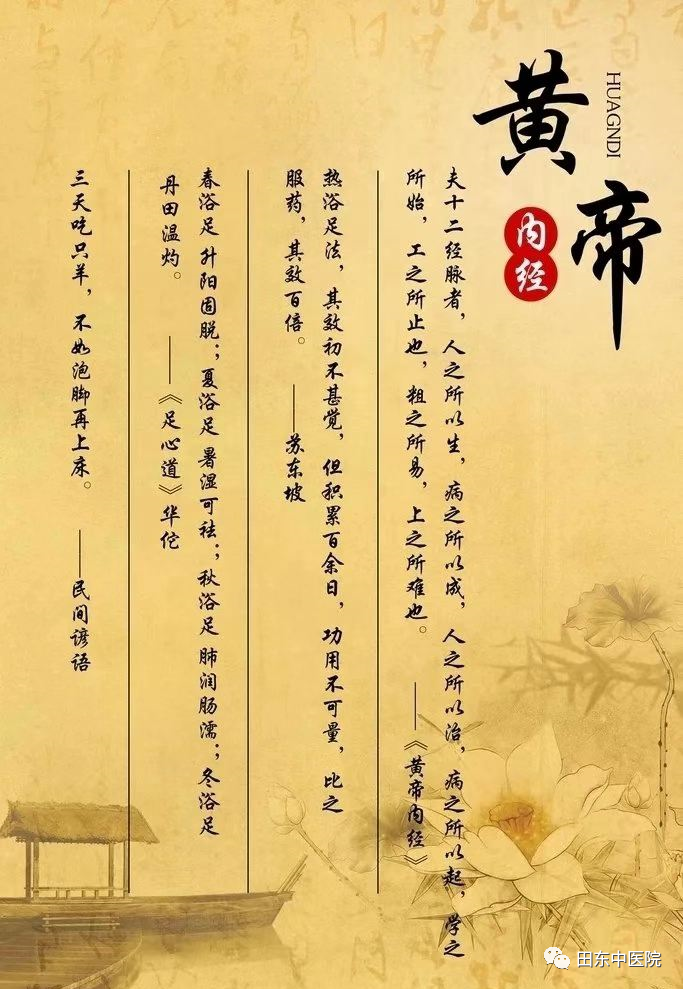 黄帝
HUAGNDI
内经
夫十二经脉者，人之所以生，病之所以成，人之所以治，病之所以起，学之
所始，工之所止也，粗之所易，上之所难也。——《黄帝内经》
热浴足法，其效初不甚觉，但积累百余日，功用不可量，比之
服药，其效百倍。——苏东坡
春浴足 升阳固脱；夏浴足 暑湿可祛；秋浴足 肺润肠濡；冬浴足
丹田温灼。——《足心道》华佗
三天吃只羊，不如泡脚再上床。——民间谚语
田东中医院